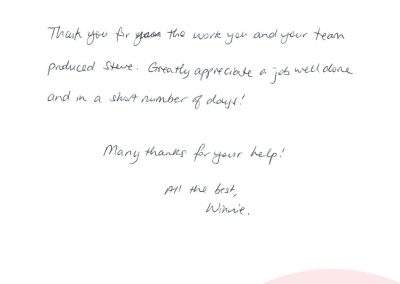 Thank you for the work you and your team
produced Steve. Greatly appreciate a job well done
and in a short number of days!
Many thanks for your help!
All the best,
Winnie.